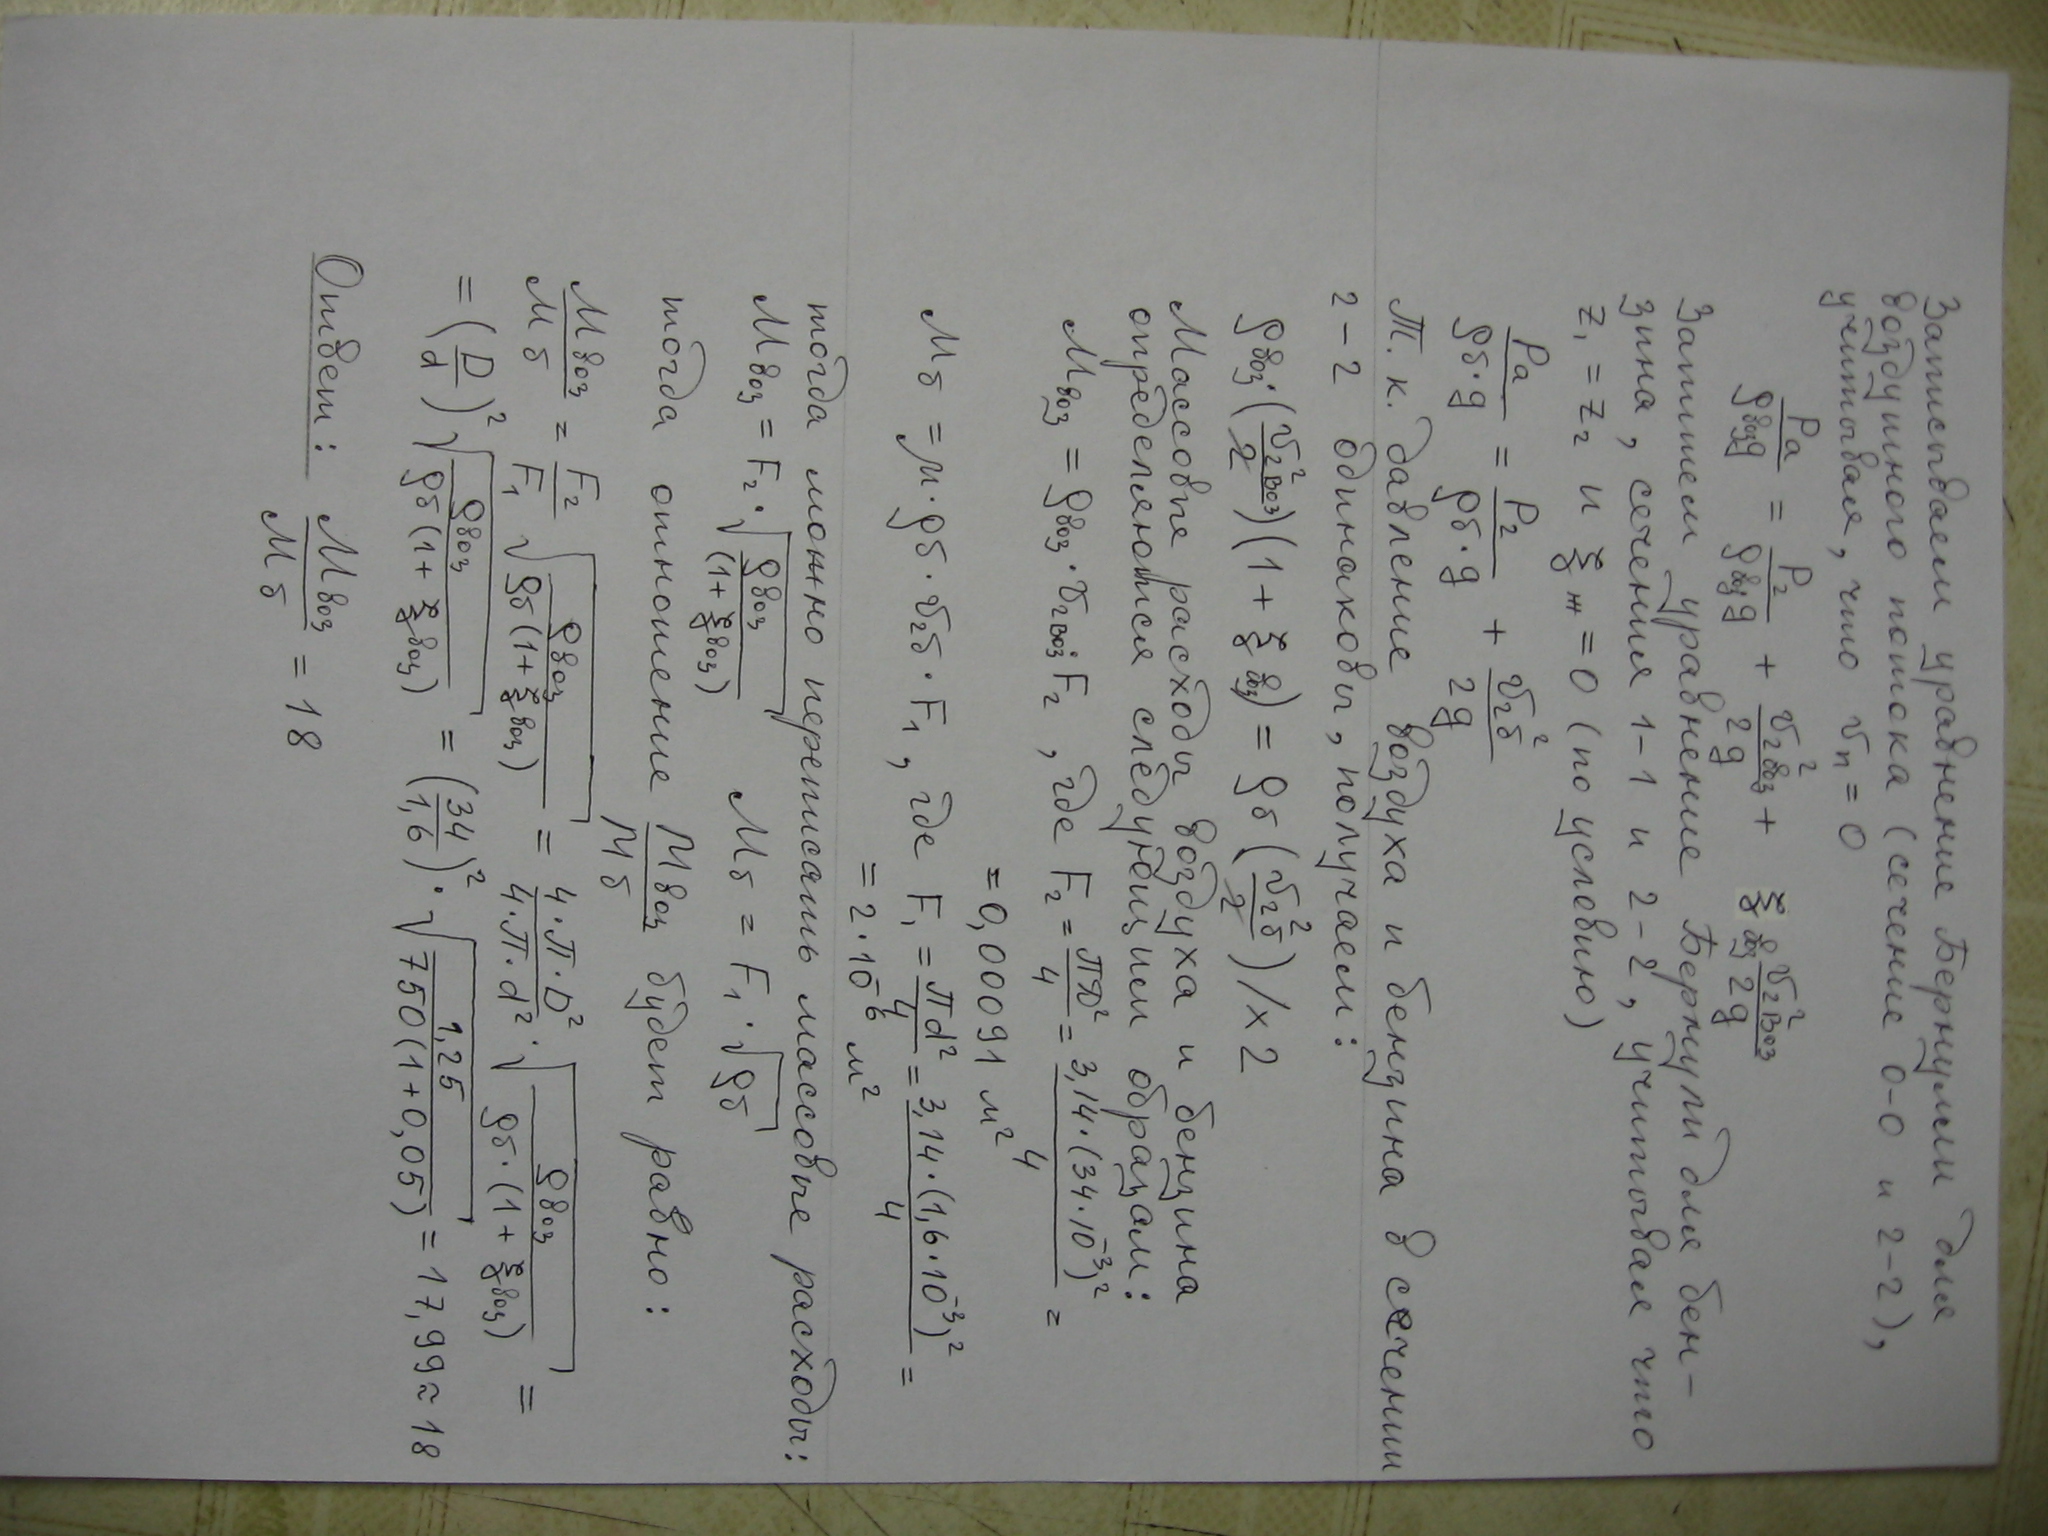 Записываем уравнение Бернулли для
воздушного потока (сечение 0-0 и 2-2),
учитывая, что υп = 0
Pа/ρвоз g = P2/ρвоз g + υ2воз²/2g + ξвоз υ2воз²/2g
Запишем уравнение Бернули для бен-
зина, сечения 1-1 и 2-2, учитывая что
z1 = z2 и ξж = 0 (по условию)
Pа/ρб·g = P2/ρб·g + υ2б²/2g
Т.к. давление воздуха и бензина в сечении
2-2 одинаковы, получаем:
ρвоз·(υ2воз²/2)(1+ξвоз) = ρб(υ2б²/2)/×2
Массовые расходы воздуха и бензина
определяются следующим образом:
Mвоз = ρвоз·υ2воз·F2, где F2 = πD²/4 = 3,14·(34·10⁻³)²/4 =
= 0,00091 м²
Mб = μ·ρб·υ2б·F1, где F1 = πd²/4 = 3,14·(1,6·10⁻³)²/4 =
= 2·10⁻⁶ м²
тогда можно переписать массовые расходы:
Mвоз = F2·√(ρвоз/(1+ξвоз)) Mб = F1·√ρб
тогда отношение Mвоз/Mб будет равно:
Mвоз/Mб = F2/F1 √(ρвоз/ρб(1+ξвоз)) = 4·π·D²/4·π·d² · √(ρвоз/ρб·(1+ξвоз)) =
= (D/d)² √(ρвоз/ρб(1+ξвоз)) = (34/1,6)²·√(1,25/750(1+0,05)) = 17,99 ≈ 18
Ответ: Mвоз/Mб = 18